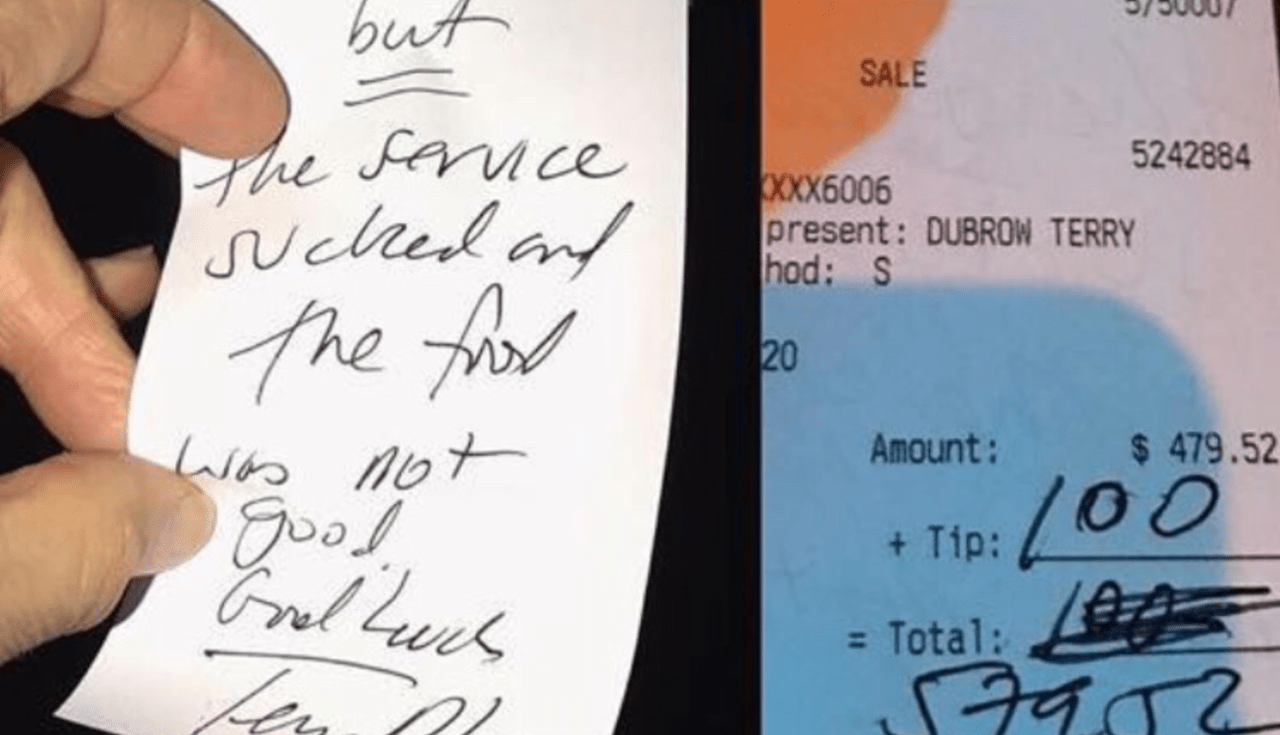 but
the service
sucked and
the food
was not
good.
Good Luck
SALE
5242884
XXX6006
present: DUBROW TERRY
hod: S
20
Amount: $ 479.52
+ Tip: 100
= Total: 100
579.52